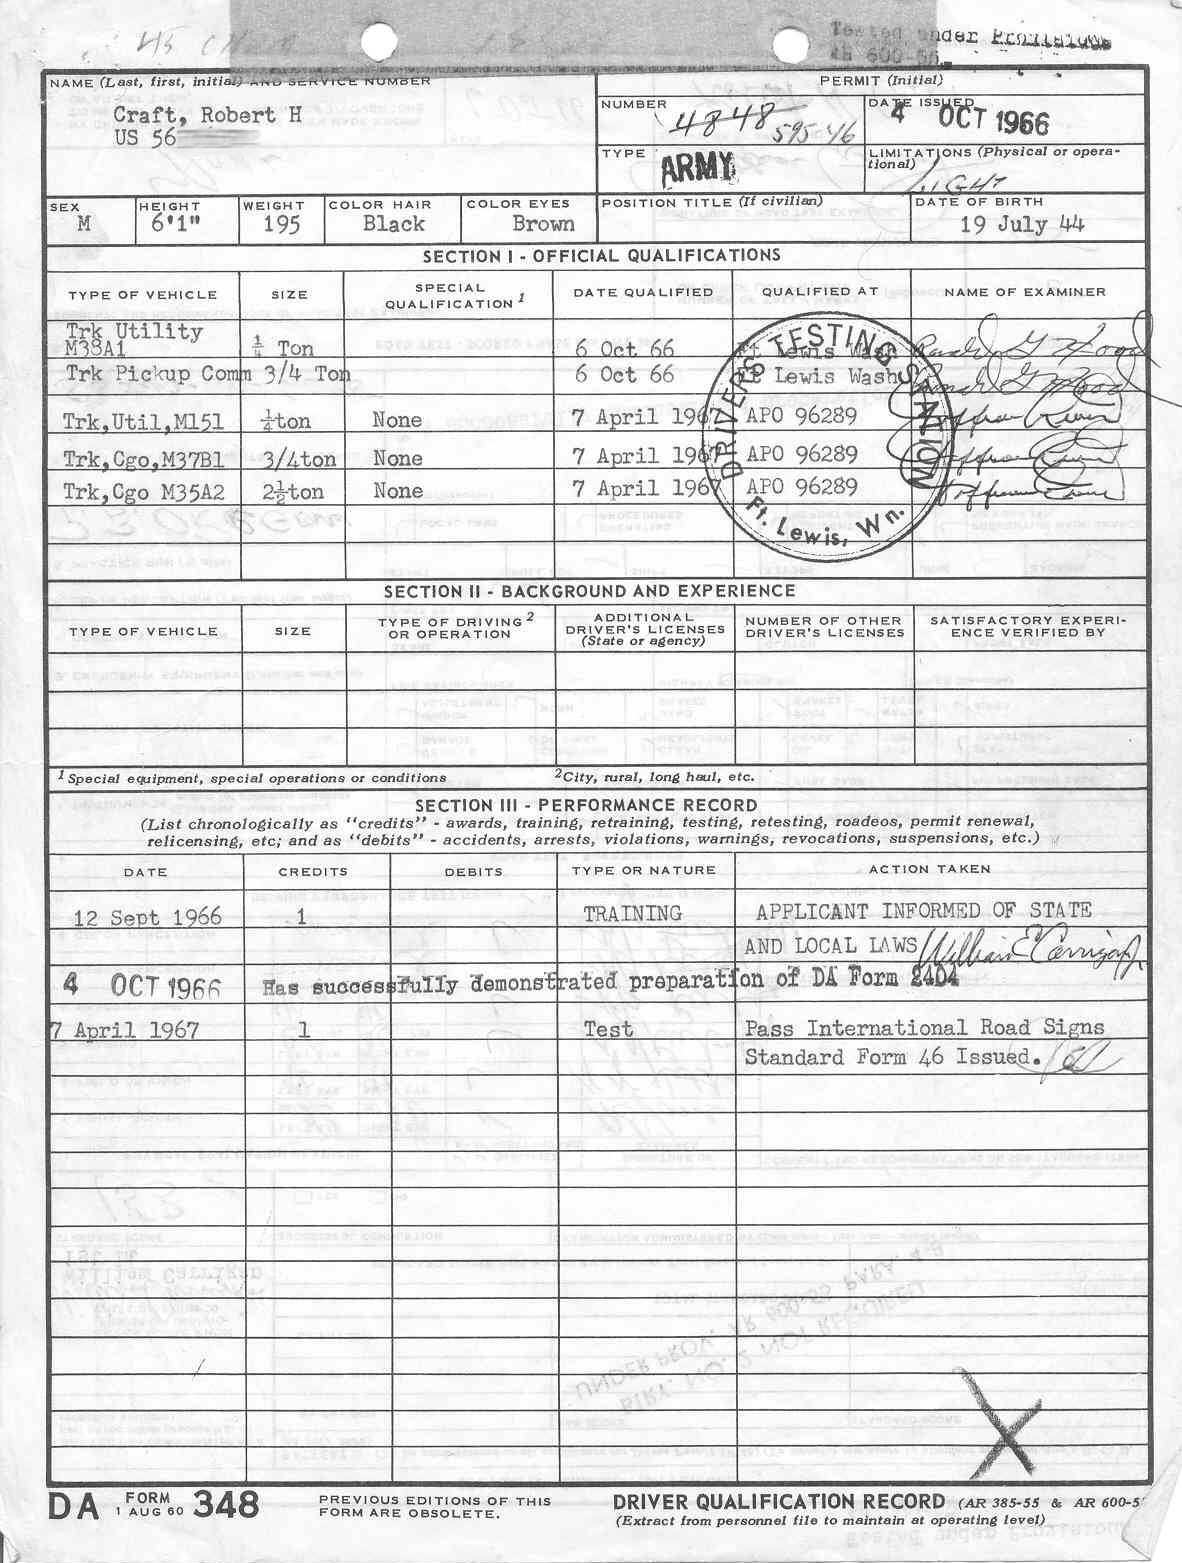 Tested Under Provisions
AR 600-55
NAME (Last, first, initial) AND SERVICE NUMBER
Craft, Robert H
US 56
PERMIT (Initial)
NUMBER
4848
59546
DATE ISSUED
4 OCT 1966
TYPE
ARMY
LIMITATIONS (Physical or opera-
tional)
LIGHT
SEX
M
HEIGHT
6'1"
WEIGHT
195
COLOR HAIR
Black
COLOR EYES
Brown
POSITION TITLE (If civilian)
DATE OF BIRTH
19 July 44
SECTION I - OFFICIAL QUALIFICATIONS
TYPE OF VEHICLE SIZE SPECIAL QUALIFICATION 1 DATE QUALIFIED QUALIFIED AT NAME OF EXAMINER
Trk Utility
M38A1 1/4 Ton 6 Oct 66 Ft Lewis Wash
Trk Pickup Comm 3/4 Ton 6 Oct 66 Ft Lewis Wash
Trk,Util,M151 ¼ton None 7 April 1967 APO 96289
Trk,Cgo,M37B1 3/4ton None 7 April 1967 APO 96289
Trk,Cgo M35A2 2½ton None 7 April 1967 APO 96289
DRIVERS TESTING STATION
Ft. Lewis, Wn.
SECTION II - BACKGROUND AND EXPERIENCE
TYPE OF VEHICLE SIZE TYPE OF DRIVING 2 OR OPERATION ADDITIONAL DRIVER'S LICENSES (State or agency) NUMBER OF OTHER DRIVER'S LICENSES SATISFACTORY EXPERI-ENCE VERIFIED BY
1 Special equipment, special operations or conditions 2 City, rural, long haul, etc.
SECTION III - PERFORMANCE RECORD
(List chronologically as "credits" - awards, training, retraining, testing, retesting, roadeos, permit renewal,
relicensing, etc; and as "debits" - accidents, arrests, violations, warnings, revocations, suspensions, etc.)
DATE CREDITS DEBITS TYPE OR NATURE ACTION TAKEN
12 Sept 1966 1 TRAINING APPLICANT INFORMED OF STATE
AND LOCAL LAWS William E Carrigan
4 OCT 1966 Has successfully demonstrated preparation of DA Form 2404
7 April 1967 1 Test Pass International Road Signs
Standard Form 46 Issued.
DA FORM 1 AUG 60 348
PREVIOUS EDITIONS OF THIS
FORM ARE OBSOLETE.
DRIVER QUALIFICATION RECORD (AR 385-55 & AR 600-5
(Extract from personnel file to maintain at operating level)